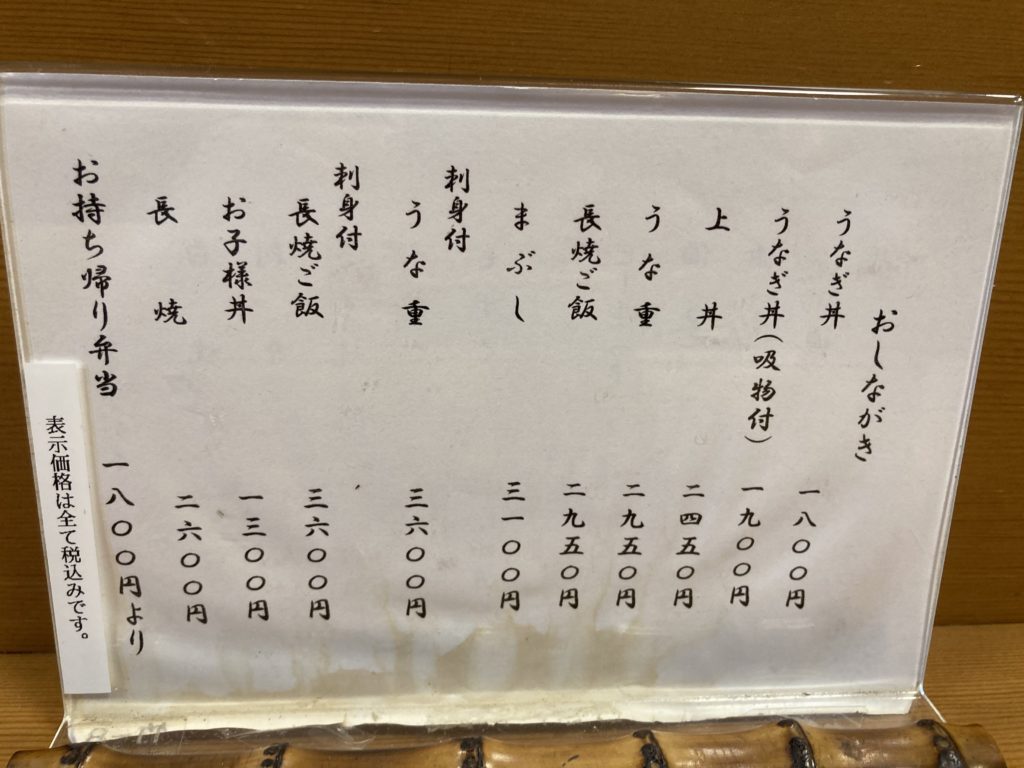 おしながき
うなぎ丼 一八〇〇円
うなぎ丼(吸物付) 一九〇〇円
上丼 二四五〇円
うな重 二九五〇円
長焼ご飯 二九五〇円
まぶし 三一〇〇円
刺身付
うな重 三六〇〇円
刺身付
長焼ご飯 三六〇〇円
お子様丼 一三〇〇円
長焼 二六〇〇円
お持ち帰り弁当 一八〇〇円より
表示価格は全て税込みです。